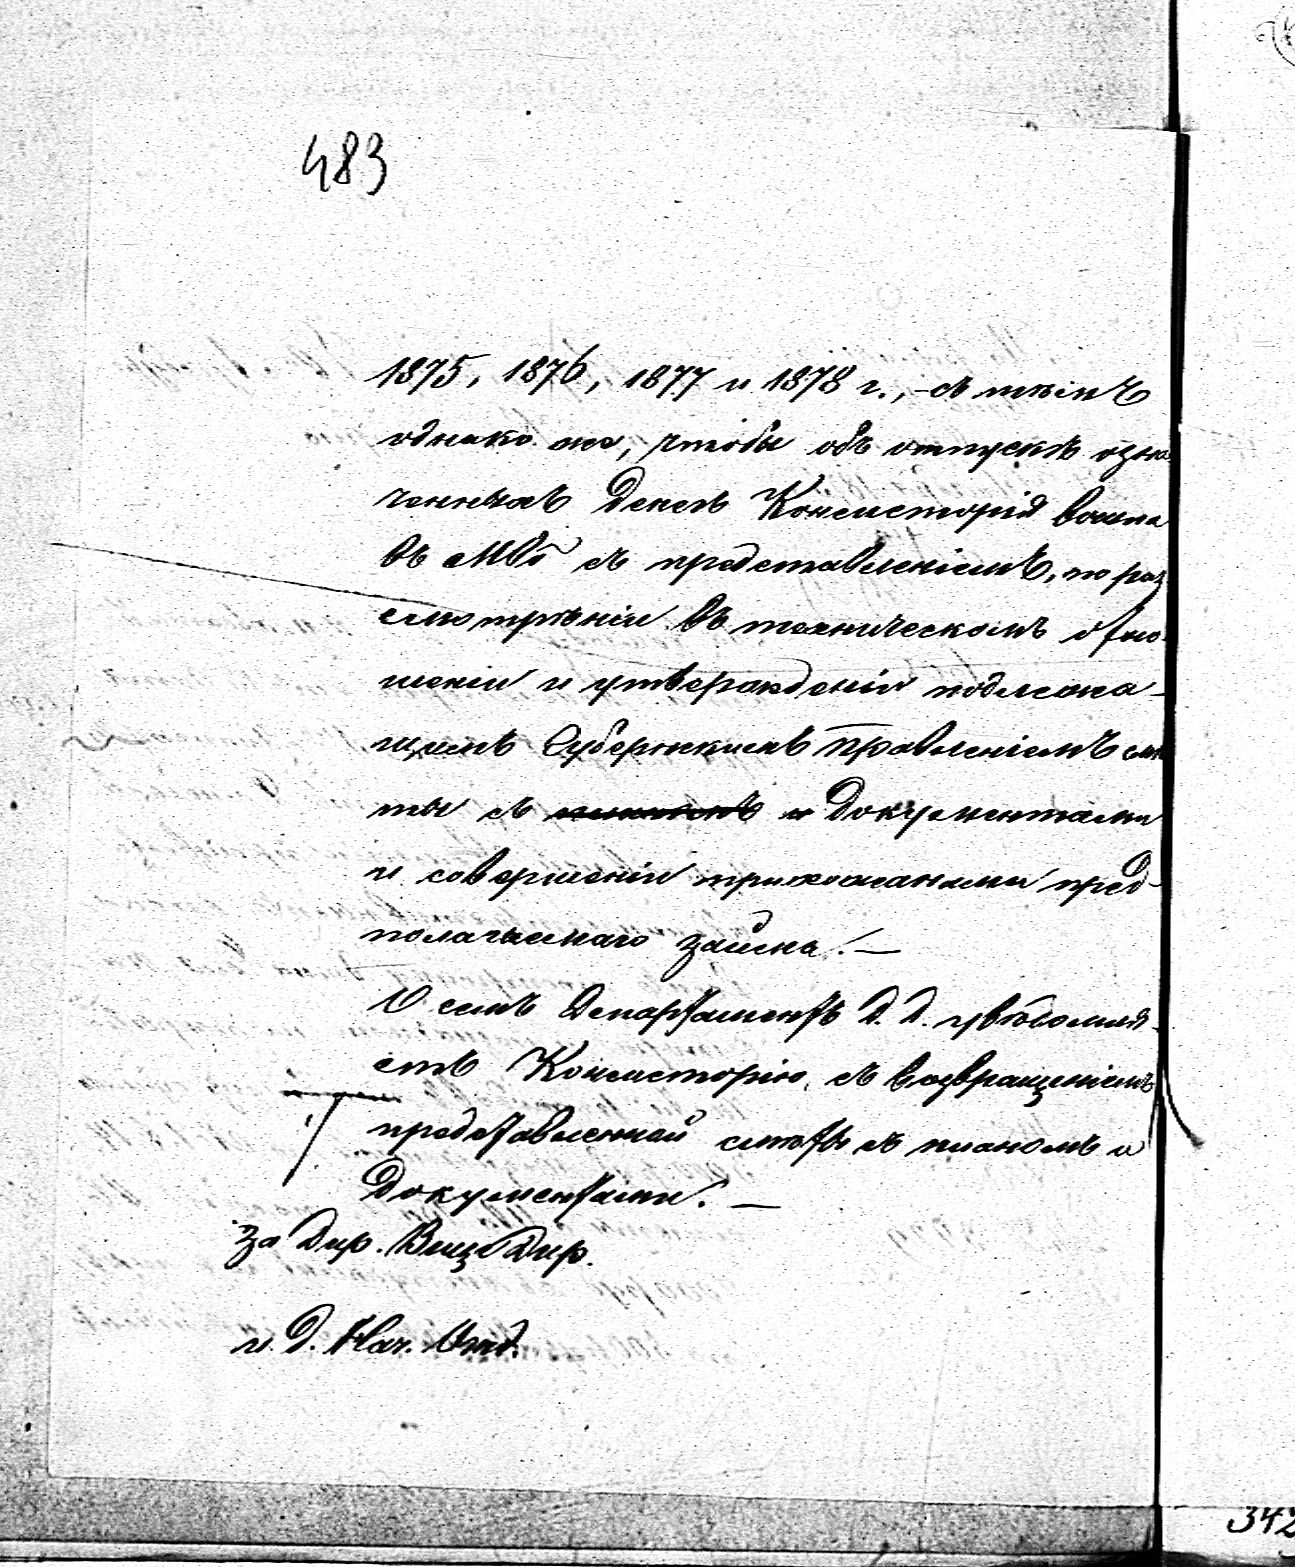 483
1875, 1876, 1877 и 1878 г., - съ тѣмъ
однако же, чтобы объ отпускѣ озна
ченныхъ денегъ Консисторія вошла
въ М-во съ представленіемъ, по раз
смотрѣніи въ техническомъ отно-
шеніи и утвержденіи подлежа-
щимъ Губернскимъ Правленіемъ смѣ
ты съ и документами
и совершеніи прихожанами пред-
полагаемаго займа. —
О семъ Департаментъ Д. Д. увѣдомля-
етъ Консисторію, съ возвращеніемъ
представленной смѣты съ планомъ и
документами. —
За Дир. Вице Дир.
и. д. Нач. Отд.
342